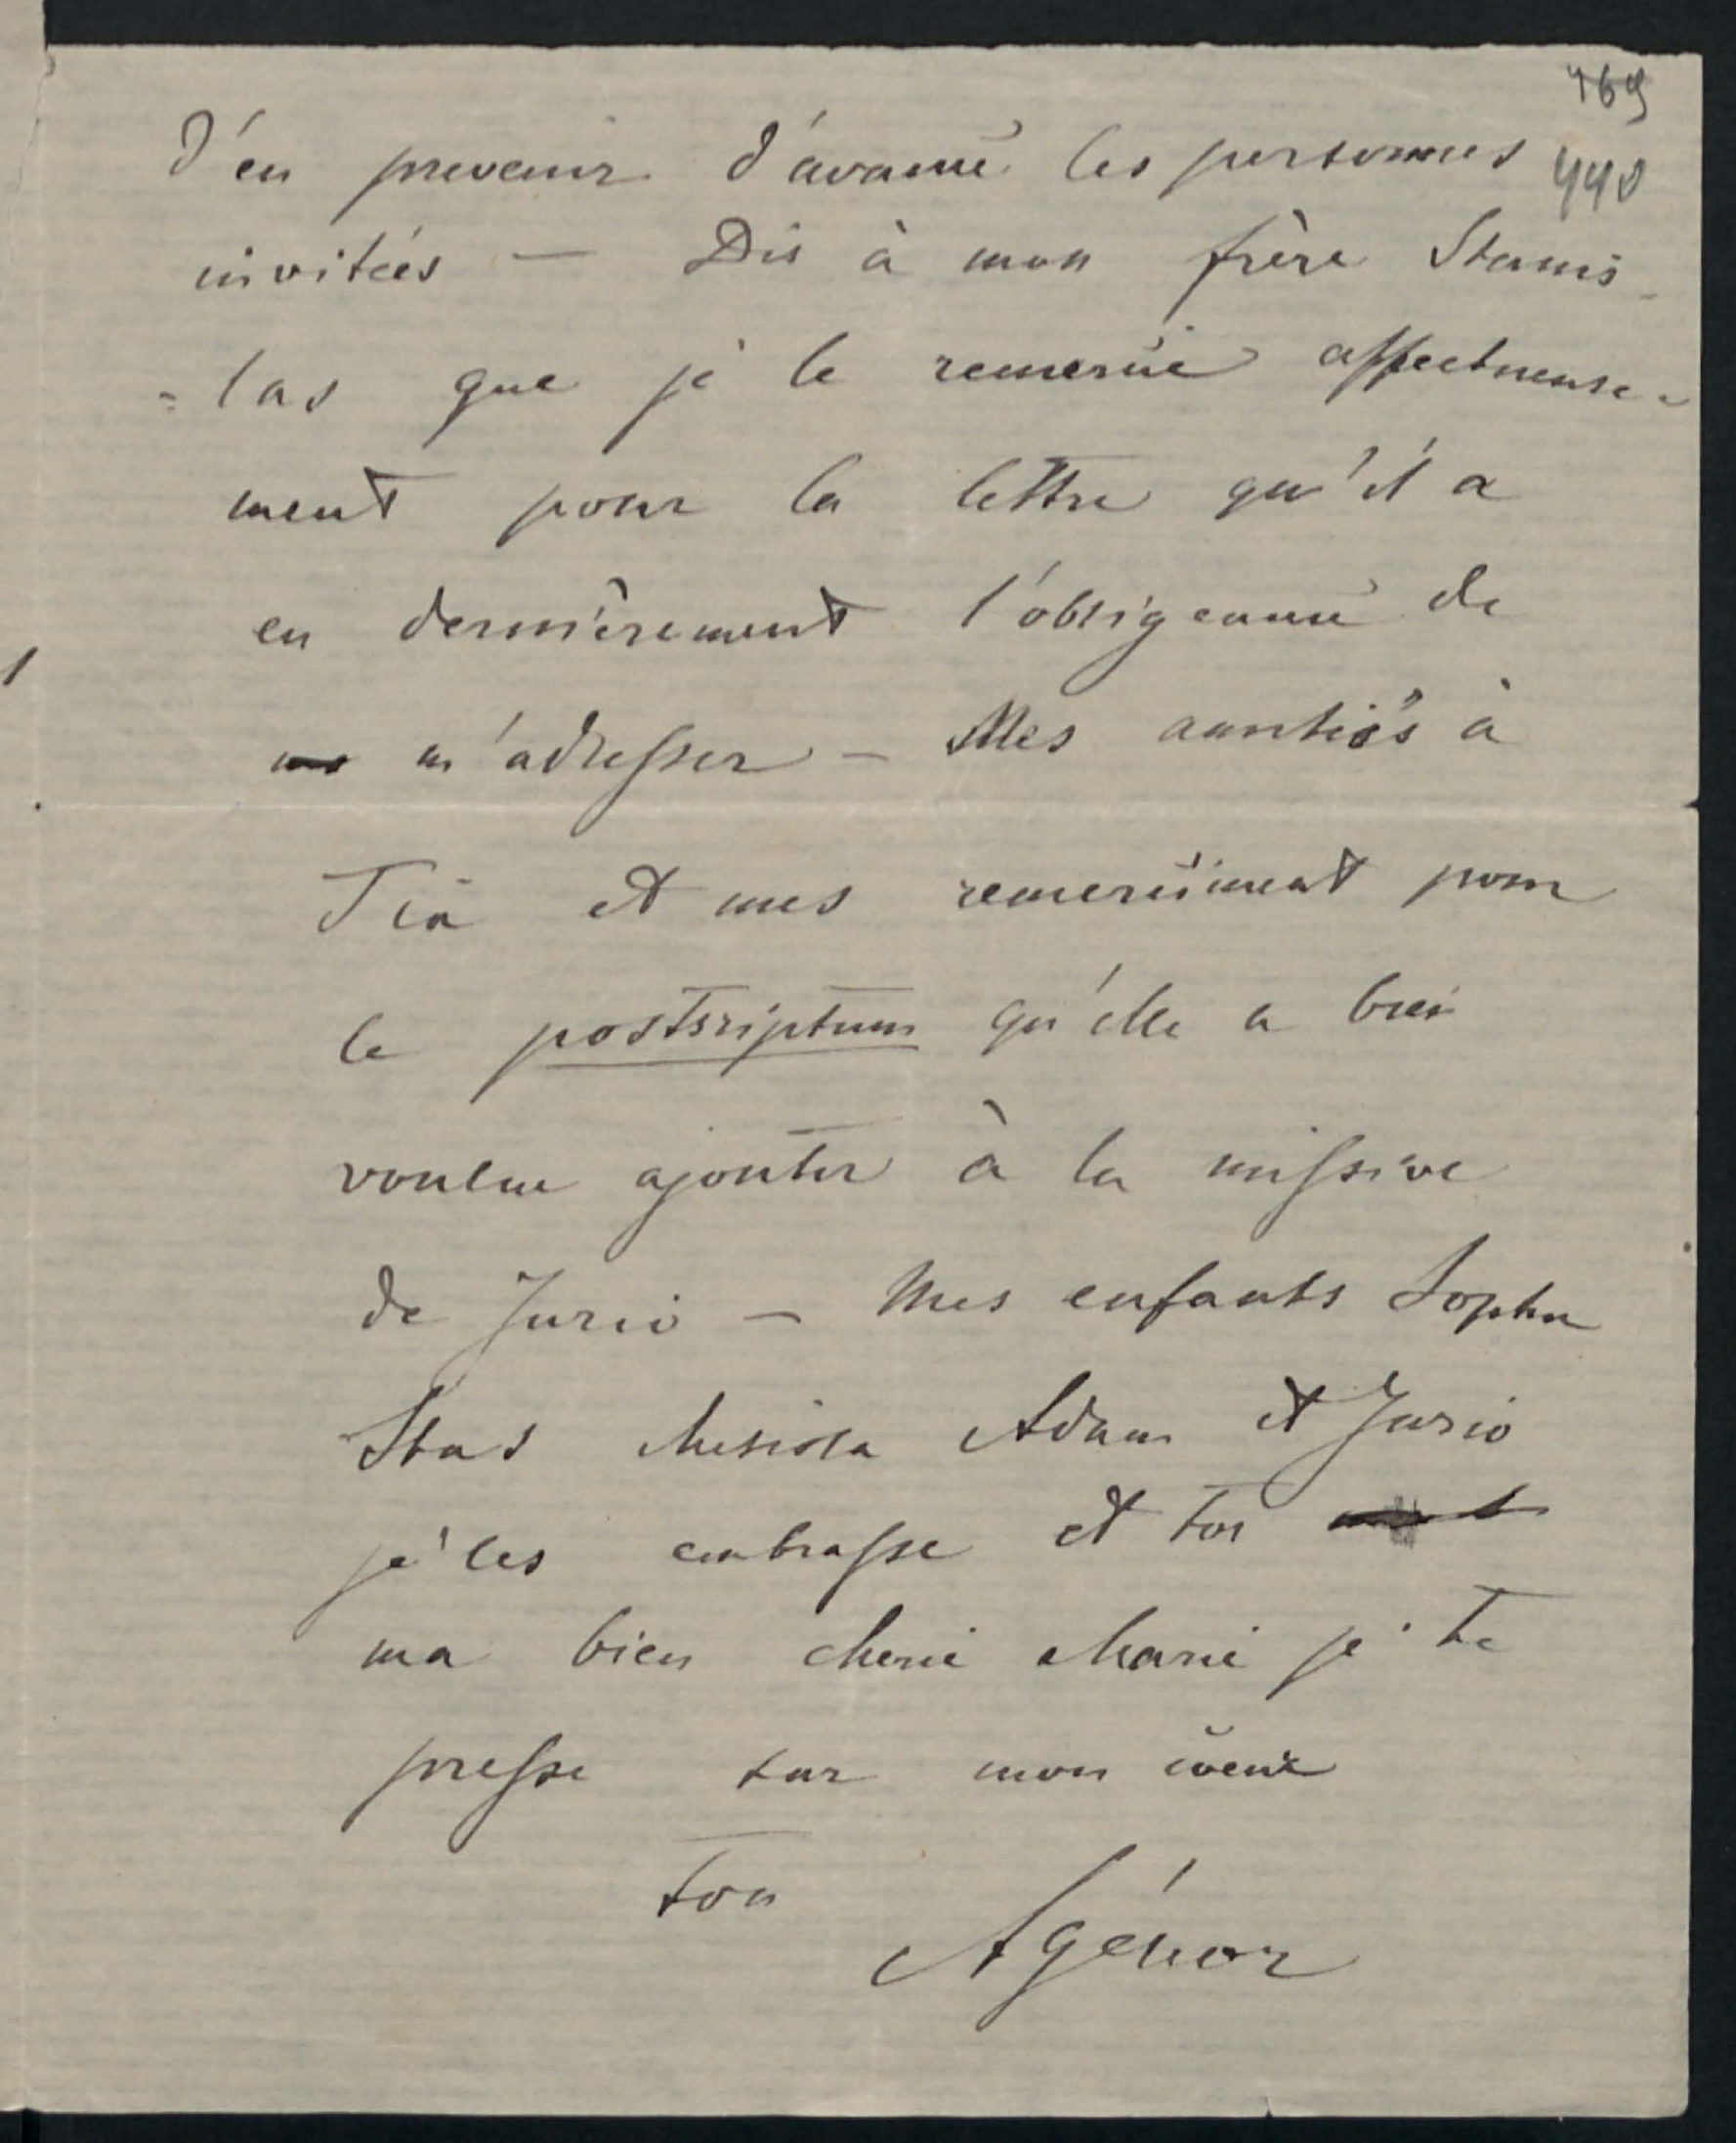 469
440
d'en prevenir d'avance les personnes
invitées — Dis à mon frère Stanis-
=las que je le remercie affectueuse-
ment pour la lettre qu'il a
eu dernièrement l'obligeance de
m'adresser — Mes amitiés à
et mes remerciment pour
le postscriptum qu'elle a bien
voulue ajouter à la missive
de Jurio — Mes enfants Sophie
Stas Adam et Jurio
je les embrasse et toi
ma bien cherie Marie je te
presse sur mon coeur
ton
Agénor